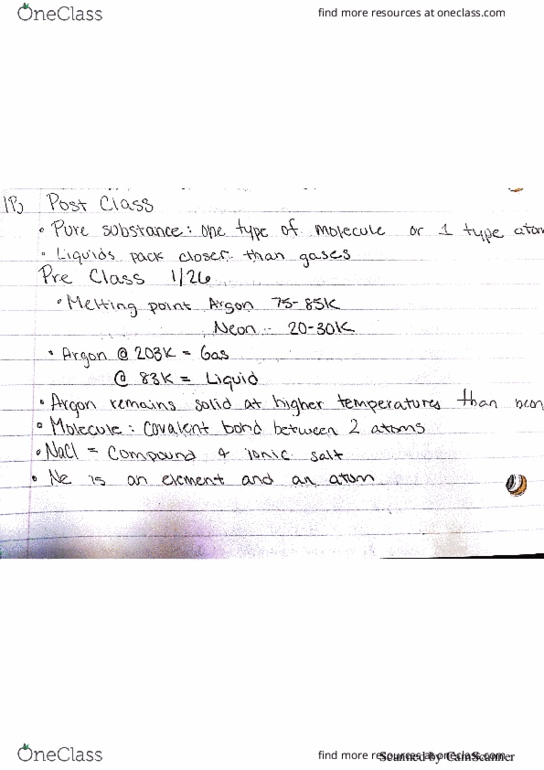 OneClass
find more resources at oneclass.com
Post Class
• Pure substance: one type of molecule or 1 type atom
• Liquids pack closer than gases
Pre Class 1/26
• Melting point Argon 75-85K
Neon -- 20-30K
• Argon @ 203K = Gas
@ 83K = Liquid
• Argon remains solid at higher temperatures than neon
• Molecule: covalent bond between 2 atoms
• NaCl = Compound & ionic salt
• Ne is an element and an atom
OneClass
find more resources at oneclass.com
Scanned by CamScanner